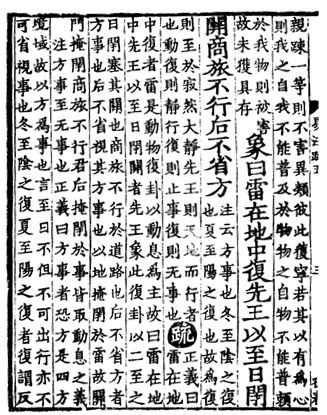 親疎一等則不害異類彼此獲寧若其以有為心
則我之自我不能普及於物物之自物不能普賴
於我物則被害
故未獲具存
象曰雷在地中復先王以至日閉
關商旅不行后不省方
注云方事也冬至陰之復
也夏至陽之復也故為復
則至於寂然大靜先王則天地而行者
也動復則靜行復則止事復則无事也
疏
正義曰
雷在地
中復者雷是動物復卦以動息為主故曰雷在地
中先王以至日閉關者先王象此復卦以二至之
日閉塞其關也商旅不行於道路也后不省方者
方事也后不省視其方事也以地掩閉於雷故關
門掩閉商旅不行君后掩閉於事皆取動息之義
注方事至无事也正義曰方事者恐方是四方
境域故以方為事也言至日不但不可出行亦不
可省視事也冬至陰之復夏至陽之復者復謂反